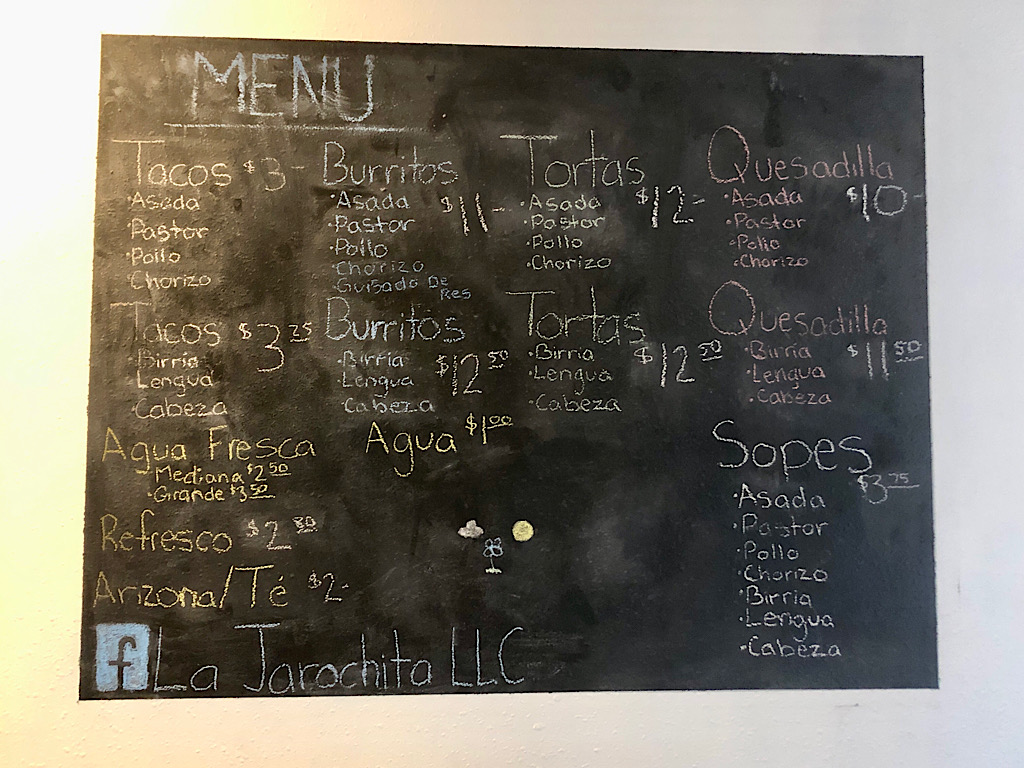 MENU
Tacos $3-
·Asada
·Pastor
·Pollo
·Chorizo
Burritos
·Asada $11-
·Pastor
·Pollo
·Chorizo
·Guisado De
Res
Tortas
·Asada $12-
·Pastor
·Pollo
·Chorizo
Quesadilla
·Asada $10-
·Pastor
·Pollo
·Chorizo
Tacos $3 25
·Birria
·Lengua
·Cabeza
Burritos
·Birria $12 50
·Lengua
·Cabeza
Tortas
·Birria $12 50
·Lengua
·Cabeza
Quesadilla
·Birria $11 50
·Lengua
·Cabeza
Agua Fresca
·Mediana $2 50
·Grande $3 50
Agua $1 00
Refresco $2 80
Arizona/Té $2-
Sopes
$3 75
·Asada
·Pastor
·Pollo
·Chorizo
·Birria
·Lengua
·Cabeza
f La Jarochita LLC